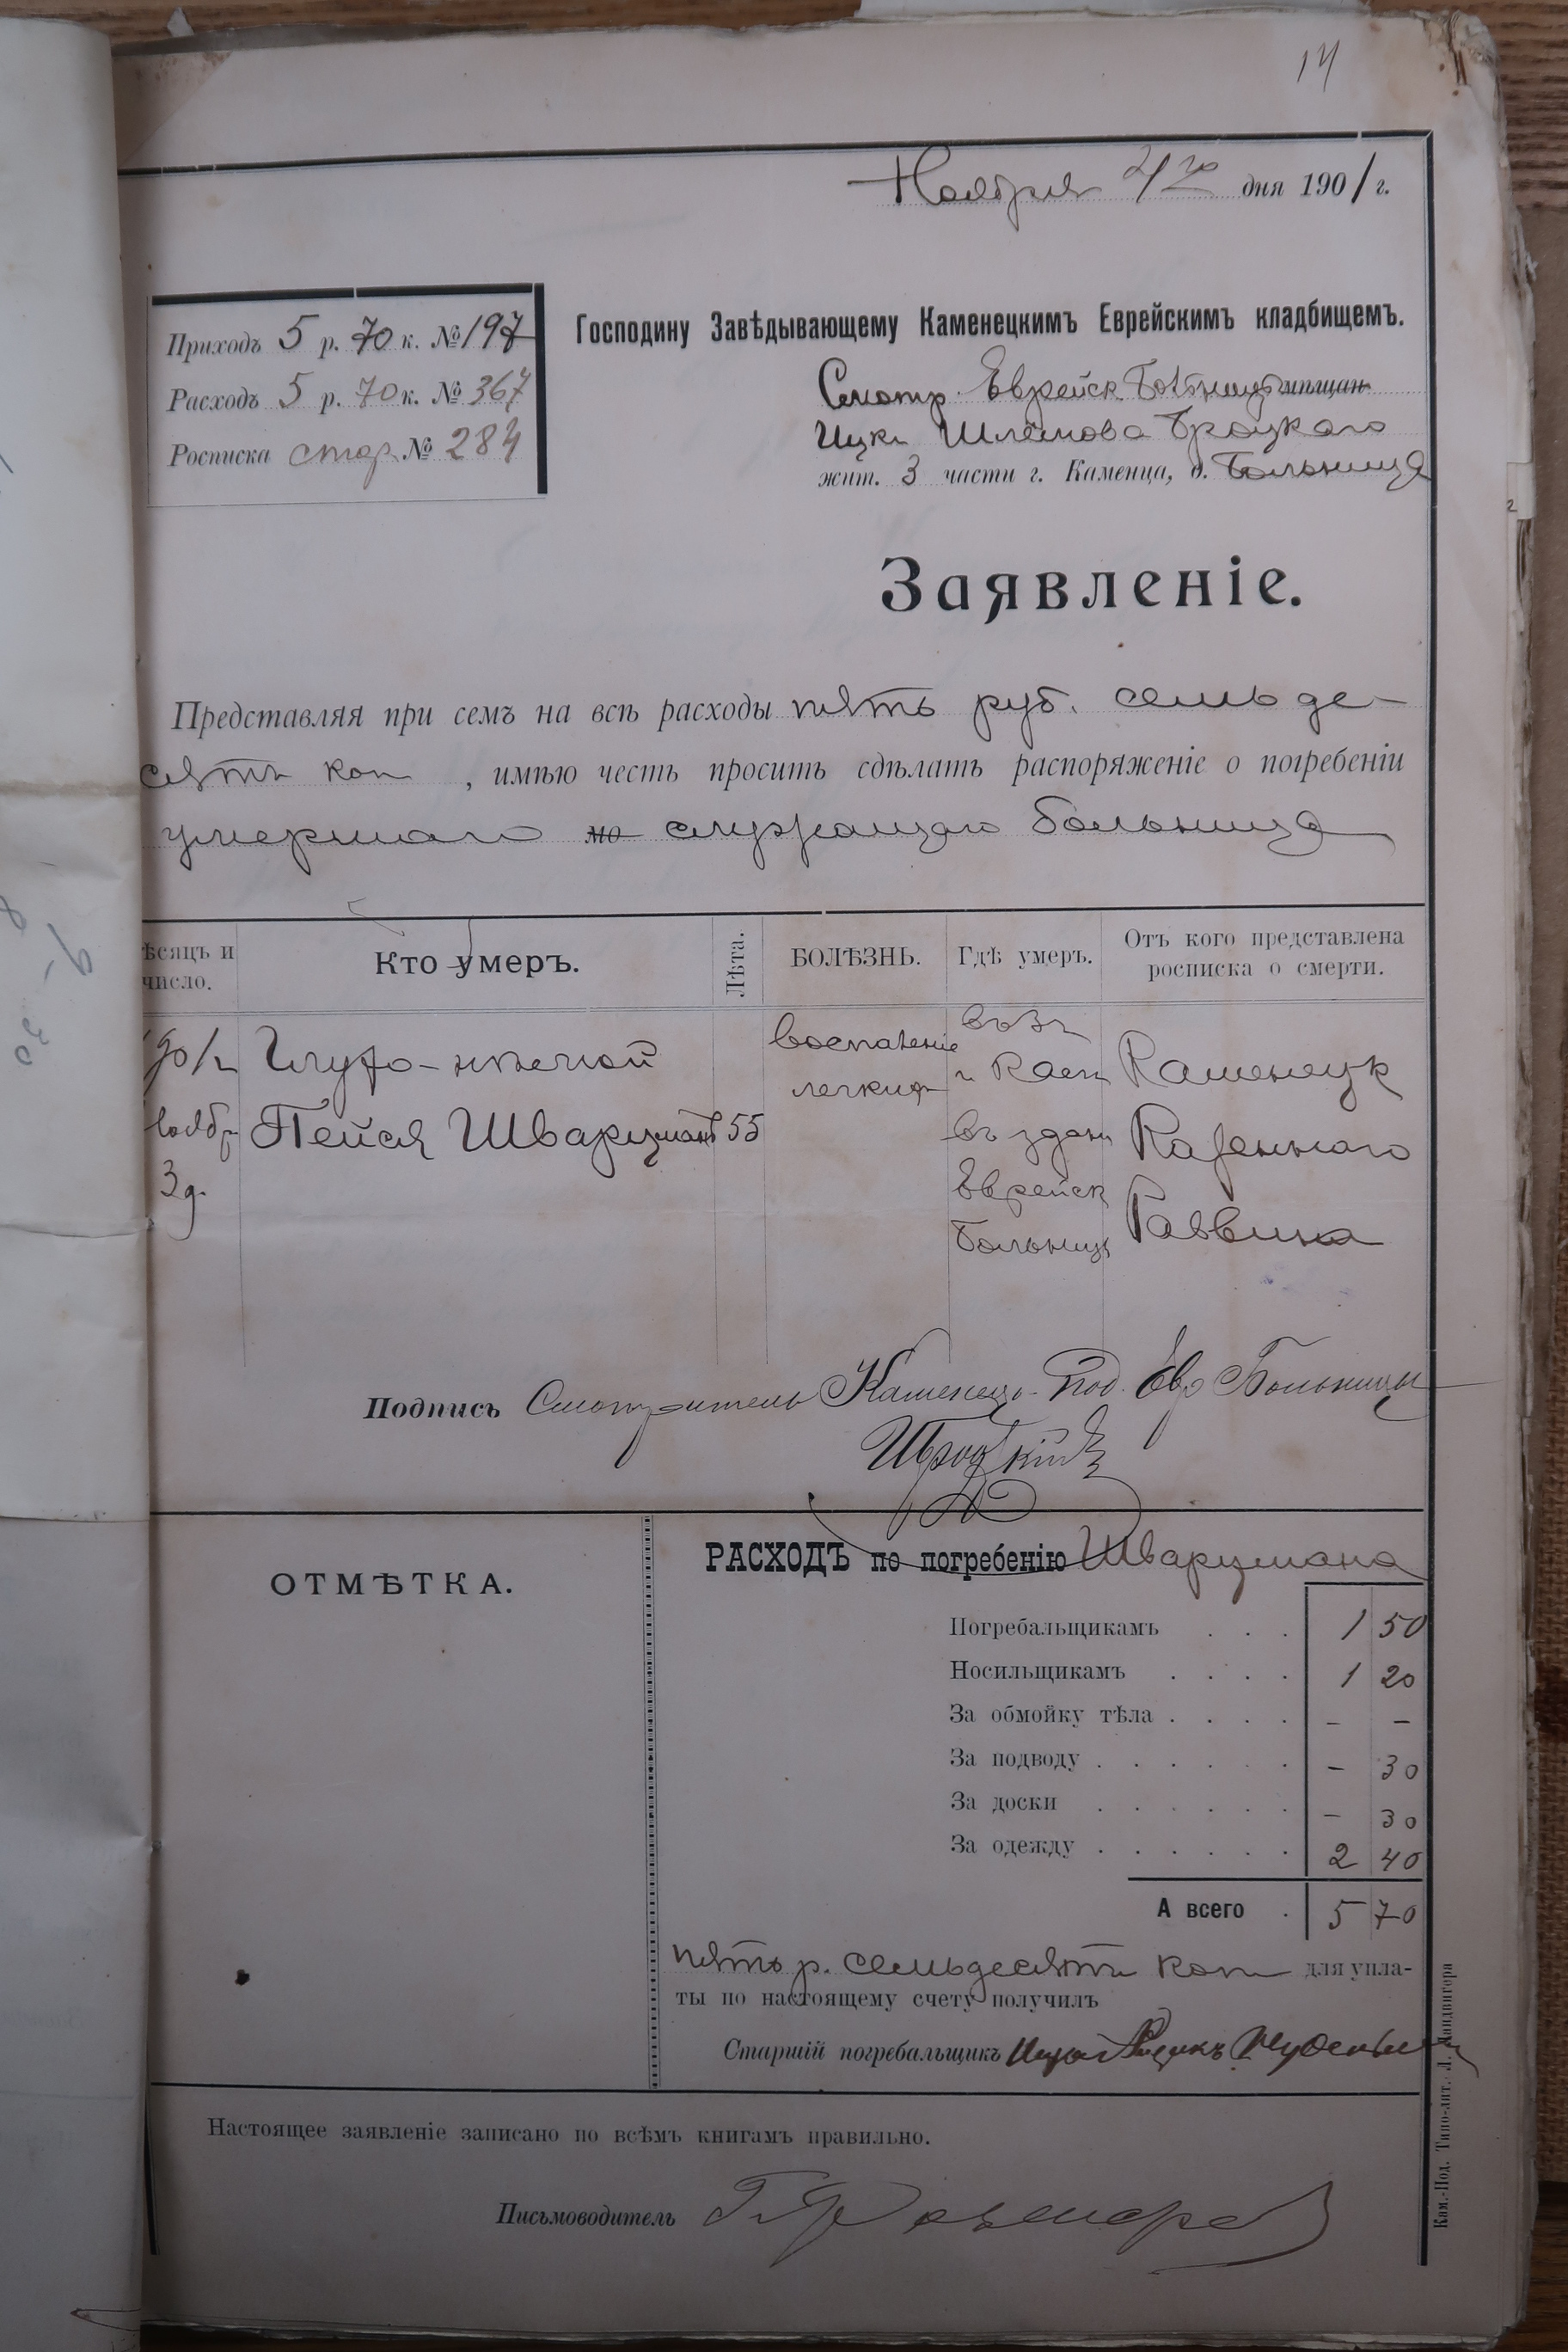 14
Ноября 4го дня 1901 г.
Приходъ 5 р. 70 к. № 197
Расходъ 5 р. 70 к. № 367
Росписка стар. № 284
Господину Завѣдывающему Каменецкимъ Еврейскимъ кладбищемъ.
Смотр. Еврейск. Больницы мѣщан
Ицка Шлемова Броцкаго
жит. 3 части г. Каменца, д. Больница
Заявленіе.
Представляя при семъ на всѣ расходы пять руб. семьде-
сять коп , имѣю честь просить сдѣлать распоряженіе о погребеніи
умершаго служащаго больница
ѣсяцъ и число.
Кто умеръ.
Лѣта.
БОЛѢЗНЬ.
Гдѣ умеръ.
Отъ кого представлена росписка о смерти.
Глухо-нѣмой
Пейся Шварцманъ
55
воспаленіе
легкихъ
въ здан
Еврейск
Больниц
Каменецк
Казеннаго
Раввина
3 д.
Подпись Смотритель Каменец-Под. Евр Больницы
ИБроцкій
ОТМѢТКА.
РАСХОДЪ по погребенію Шварцмана
Погребальщикамъ . . . 1 50
Носильщикамъ . . . . 1 20
За обмойку тѣла . . . . – –
За подводу . . . . . . – 30
За доски . . . . . . – 30
За одежду . . . . . . 2 40
А всего . 5 70
пять р. семьдесять коп для упла-
ты по настоящему счету получилъ
Старшій погребальщикъ
Настоящее заявленіе записано по всѣмъ книгамъ правильно.
Письмоводитель
Кам.-Под. Типо-лит. Л. Ландвигера